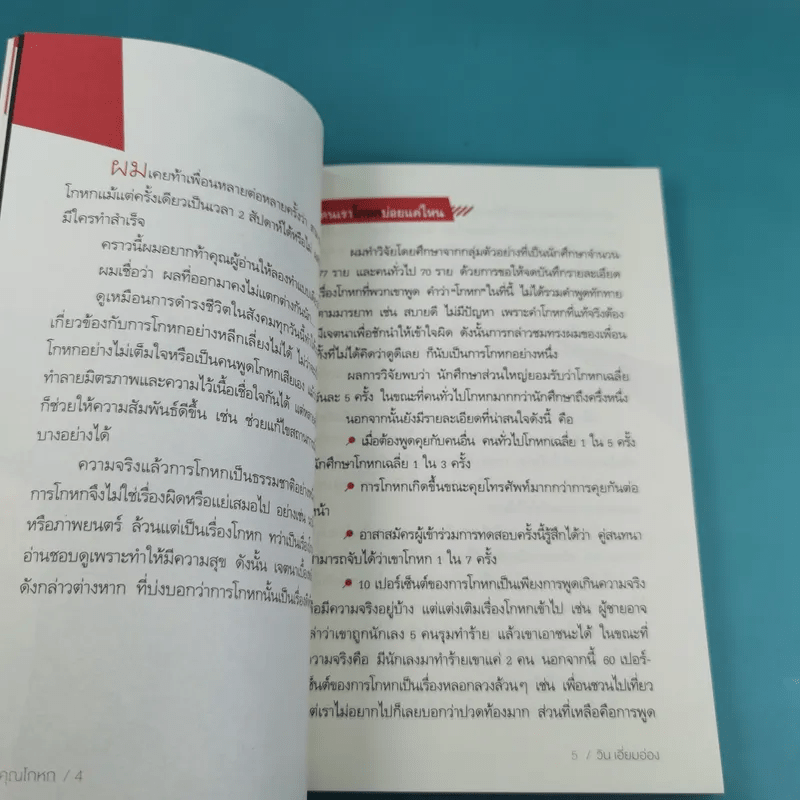 ผมเคยท้าเพื่อนหลายต่อหลายครั้งว่า
โกหกแม้แต่ครั้งเดียวเป็นเวลา 2 สัปดาห์ได้หรือไม่
มีใครทำสำเร็จ
คราวนี้ผมอยากท้าคุณผู้อ่านให้ลองทำแบบ
ผมเชื่อว่า ผลที่ออกมาคงไม่แตกต่างกัน
ดูเหมือนการดำรงชีวิตในสังคมทุกวันนี้
เกี่ยวข้องกับการโกหกอย่างหลีกเลี่ยงไม่ได้
โกหกอย่างไม่เต็มใจหรือเป็นคนพูดโกหกเสียเอง
ทำลายมิตรภาพและความไว้เนื้อเชื่อใจกันได้
ก็ช่วยให้ความสัมพันธ์ดีขึ้น เช่น ช่วยแก้ไข
บางอย่างได้
ความจริงแล้วการโกหกเป็นธรรมชาติ
การโกหกจึงไม่ใช่เรื่องผิดหรือแย่เสมอไป อย่างเช่น
หรือภาพยนตร์ ล้วนแต่เป็นเรื่องโกหก ทว่าเป็นเรื่อง
อ่านชอบดูเพราะทำให้มีความสุข ดังนั้น เจตนา
ดังกล่าวต่างหาก ที่บ่งบอกว่าการโกหกนั้นเป็นเรื่อง
คุณโกหก / 4
คนเราโกหกบ่อยแค่ไหน
ผมทำวิจัยโดยศึกษาจากกลุ่มตัวอย่างที่เป็นนักศึกษาจำนวน
77 ราย และคนทั่วไป 70 ราย ด้วยการขอให้จดบันทึกรายละเอียด
เรื่องโกหกที่พวกเขาพูด คำว่า“โกหก”ในที่นี้ ไม่ได้รวมคำพูดทักทาย
ตามมารยาท เช่น สบายดี ไม่มีปัญหา เพราะคำโกหกที่แท้จริงต้อง
มีเจตนาเพื่อชักนำให้เข้าใจผิด ดังนั้นการกล่าวชมทรงผมของเพื่อน
ทั้งที่ไม่ได้คิดว่าดูดีเลย ก็นับเป็นการโกหกอย่างหนึ่ง
ผลการวิจัยพบว่า นักศึกษาส่วนใหญ่ยอมรับว่าโกหกเฉลี่ย
วันละ 5 ครั้ง ในขณะที่คนทั่วไปโกหกมากกว่านักศึกษาถึงครึ่งหนึ่ง
นอกจากนั้นยังมีรายละเอียดที่น่าสนใจดังนี้ คือ
เมื่อต้องพูดคุยกับคนอื่น คนทั่วไปโกหกเฉลี่ย 1 ใน 5 ครั้ง
นักศึกษาโกหกเฉลี่ย 1 ใน 3 ครั้ง
การโกหกเกิดขึ้นขณะคุยโทรศัพท์มากกว่าการคุยกันต่อ
หน้า
อาสาสมัครผู้เข้าร่วมการทดสอบครั้งนี้รู้สึกได้ว่า คู่สนทนา
สามารถจับได้ว่าเขาโกหก 1 ใน 7 ครั้ง
10 เปอร์เซ็นต์ของการโกหกเป็นเพียงการพูดเกินความจริง
คือมีความจริงอยู่บ้าง แต่แต่งเติมเรื่องโกหกเข้าไป เช่น ผู้ชายอาจ
เล่าว่าเขาถูกนักเลง 5 คนรุมทำร้าย แล้วเขาเอาชนะได้ ในขณะที่
ความจริงคือ มีนักเลงมาทำร้ายเขาแค่ 2 คน นอกจากนี้ 60 เปอร์-
เซ็นต์ของการโกหกเป็นเรื่องหลอกลวงล้วนๆ เช่น เพื่อนชวนไปเที่ยว
แต่เราไม่อยากไปก็เลยบอกว่าปวดท้องมาก ส่วนที่เหลือคือการพูด
5 / วิน เอี่ยมอ่อง